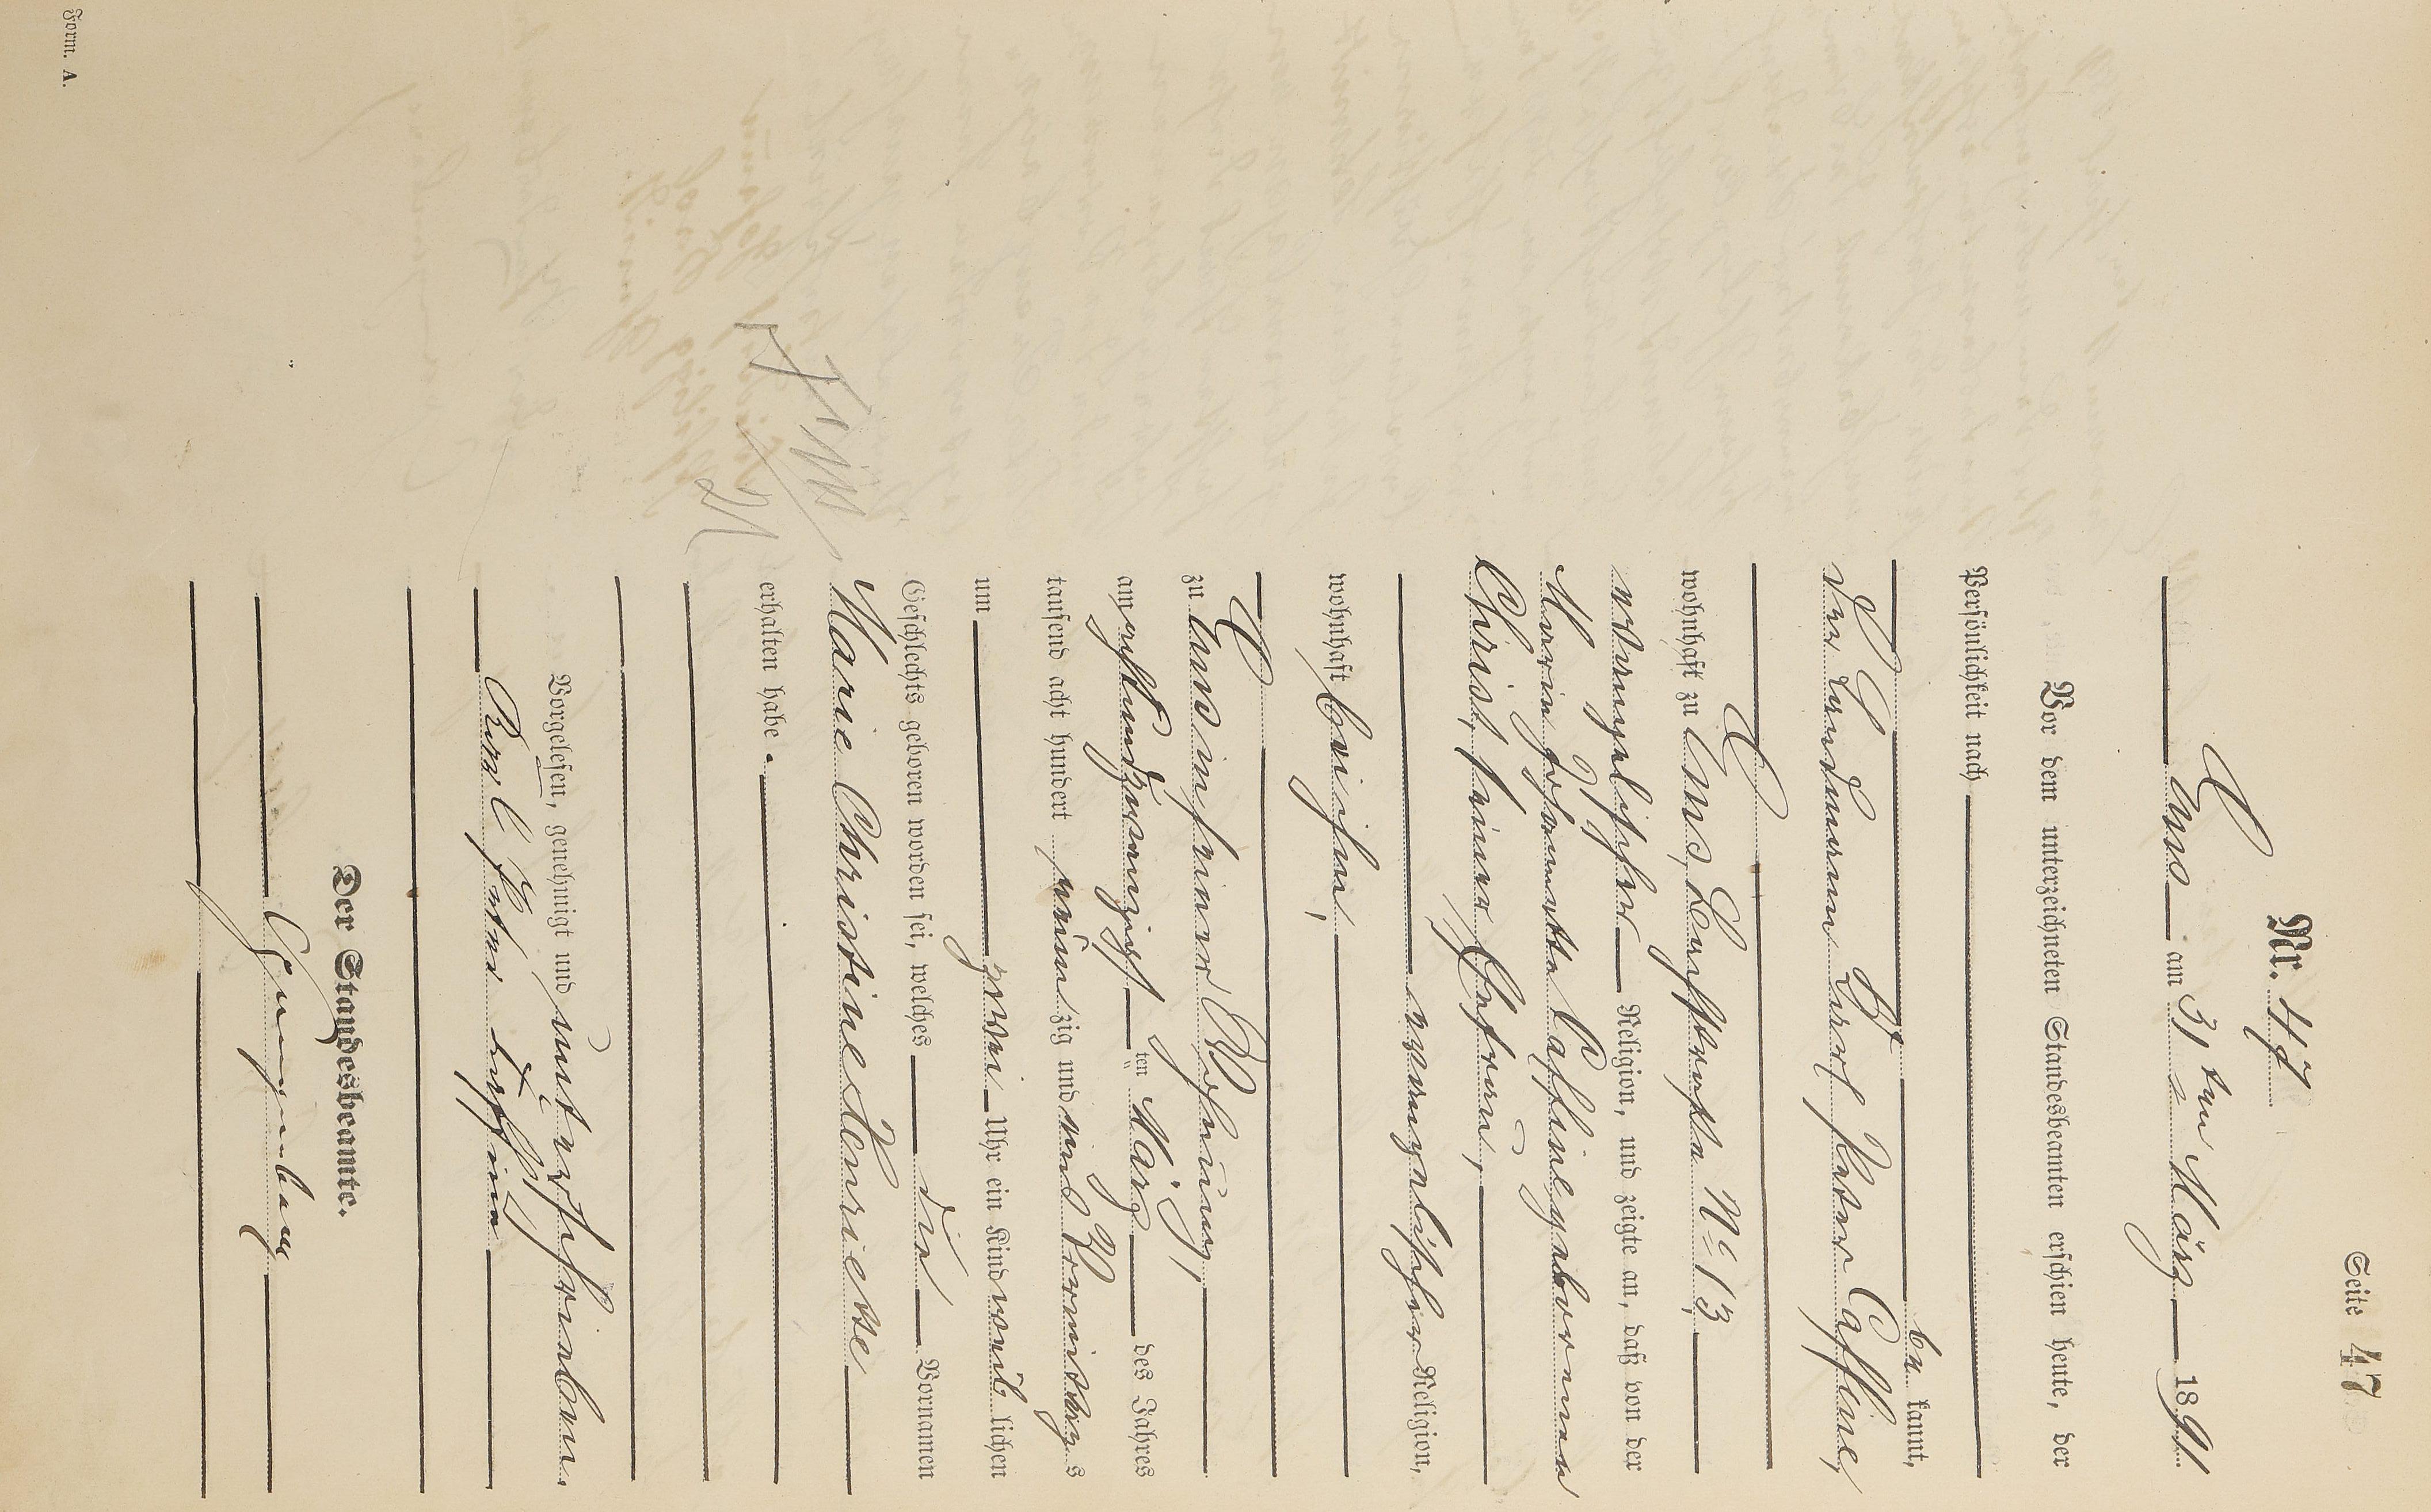 Seite 47
Nr. 47
Ems am 31ten März 1891
Vor dem unterzeichneten Standesbeamten erschien heute, der
Persönlichkeit nach
be kannt,
der Landmann Karl Peter
wohnhaft zu Ems, Bachstraße No 13
evangelischer Religion, und zeigte an, daß von der
Marie geborenen
Christ, seiner Ehefrau,
evangelischer Religion,
wohnhaft bei ihm,
zu Ems in seiner Wohnung,
am achtundzwanzigsten März des Jahres
tausend acht hundert neun zig und eins Vormittags
um zwei Uhr ein Kind weib lichen
Geschlechts geboren worden sei, welches die Vornamen
Marie Christine Henriette
erhalten habe.
Vorgelesen, genehmigt und unterschrieben.
Karl Peter
Der Standesbeamte.
Form. A.